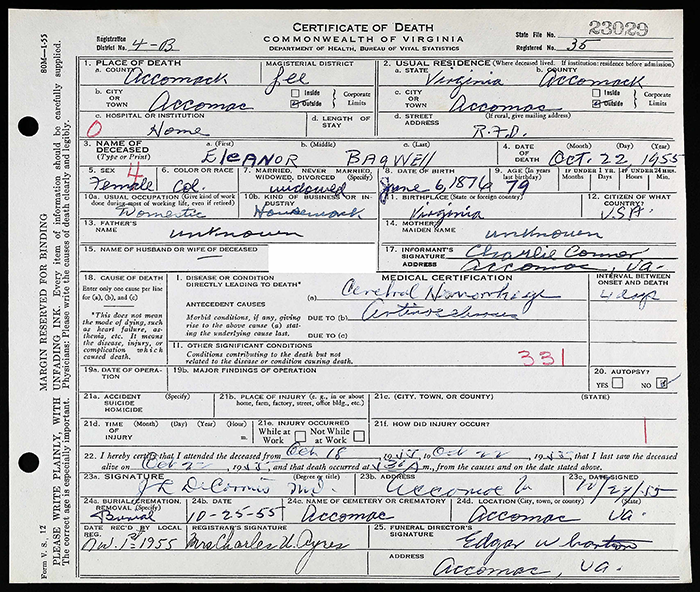 CERTIFICATE OF DEATH
COMMONWEALTH OF VIRGINIA
DEPARTMENT OF HEALTH, BUREAU OF VITAL STATISTICS
Registration District No. 4-B
State File No. 23029
Registered No. 35
80M—1-55
1. PLACE OF DEATH
a. COUNTY Accomack
MAGISTERIAL DISTRICT Lee
b. CITY OR TOWN Accomac
Inside Outside Corporate Limits
c. HOSPITAL OR INSTITUTION Home
0
d. LENGTH OF STAY
2. USUAL RESIDENCE (Where deceased lived. If institution: residence before admission)
a. STATE Virginia
b. COUNTY Accomack
c. CITY OR TOWN Accomac
Inside Outside Corporate Limits
d. STREET ADDRESS (If rural, give mailing address)
R.F.D.
3. NAME OF DECEASED (Type or Print)
a. (First) b. (Middle) c. (Last)
ELEANOR BAGWELL
4. DATE OF DEATH Oct. 22, 1955
5. SEX 4 Female
6. COLOR OR RACE Col.
7. MARRIED, NEVER MARRIED, WIDOWED, DIVORCED (Specify) widowed
8. DATE OF BIRTH June 6, 1876
9. AGE (In years last birthday) 79
IF UNDER 1 YEAR IF UNDER 24 HRS.
10a. USUAL OCCUPATION (Give kind of work done during most of working life, even if retired)
Domestic
10b. KIND OF BUSINESS OR INDUSTRY
Housework
11. BIRTHPLACE (State or foreign country)
Virginia
12. CITIZEN OF WHAT COUNTRY?
USA.
13. FATHER'S NAME
unknown
14. MOTHER'S MAIDEN NAME
unknown
15. NAME OF HUSBAND OR WIFE OF DECEASED
17. INFORMANT'S SIGNATURE Charlie Conner
ADDRESS Accomac, Va.
18. CAUSE OF DEATH
Enter only one cause per line for (a), (b), and (c)
*This does not mean the mode of dying, such as heart failure, asthenia, etc. It means the disease, injury, or complication which caused death.
MEDICAL CERTIFICATION
INTERVAL BETWEEN ONSET AND DEATH
I. DISEASE OR CONDITION DIRECTLY LEADING TO DEATH*
(a) Cerebral Hemorrhage
4 days
ANTECEDENT CAUSES
Morbid conditions, if any, giving rise to the above cause (a) stating the underlying cause last.
DUE TO (b)
DUE TO (c)
II. OTHER SIGNIFICANT CONDITIONS
Conditions contributing to the death but not related to the disease or condition causing death.
331
19a. DATE OF OPERATION
19b. MAJOR FINDINGS OF OPERATION
20. AUTOPSY?
YES NO
21a. ACCIDENT SUICIDE HOMICIDE
21b. PLACE OF INJURY (e. g., in or about home, farm, factory, street, office bldg., etc.)
21c. (CITY, TOWN, OR COUNTY)
21d. TIME OF INJURY (Month) (Day) (Year) (Hour) m.
21e. INJURY OCCURRED
While at Work Not While at Work
21f. HOW DID INJURY OCCUR?
22. I hereby certify that I attended the deceased from Oct 18 1955 to Oct 22 1955 that I last saw the deceased
alive on Oct 22 1955, and that death occurred at m., from the causes and on the date stated above.
23a. SIGNATURE (Degree or title) DeCormis MD
23b. ADDRESS Accomac Va
23c. DATE SIGNED
24a. BURIAL, CREMATION, REMOVAL (Specify) Burial
24b. DATE 10-25-55
24c. NAME OF CEMETERY OR CREMATORY Accomac
24d. LOCATION (City, town, or county) (State)
Accomac Va.
DATE REC'D BY LOCAL REG. Nov. 1st 1955
REGISTRAR'S SIGNATURE Mrs Charles U. Ayres
25. FUNERAL DIRECTOR'S SIGNATURE Edgar W
ADDRESS Accomac, Va.
Form V. S. 12
MARGIN RESERVED FOR BINDING
PLEASE WRITE PLAINLY, WITH UNFADING INK. Every item of information should be carefully supplied.
The correct age is especially important. Physicians: Please write the causes of death clearly and legibly.